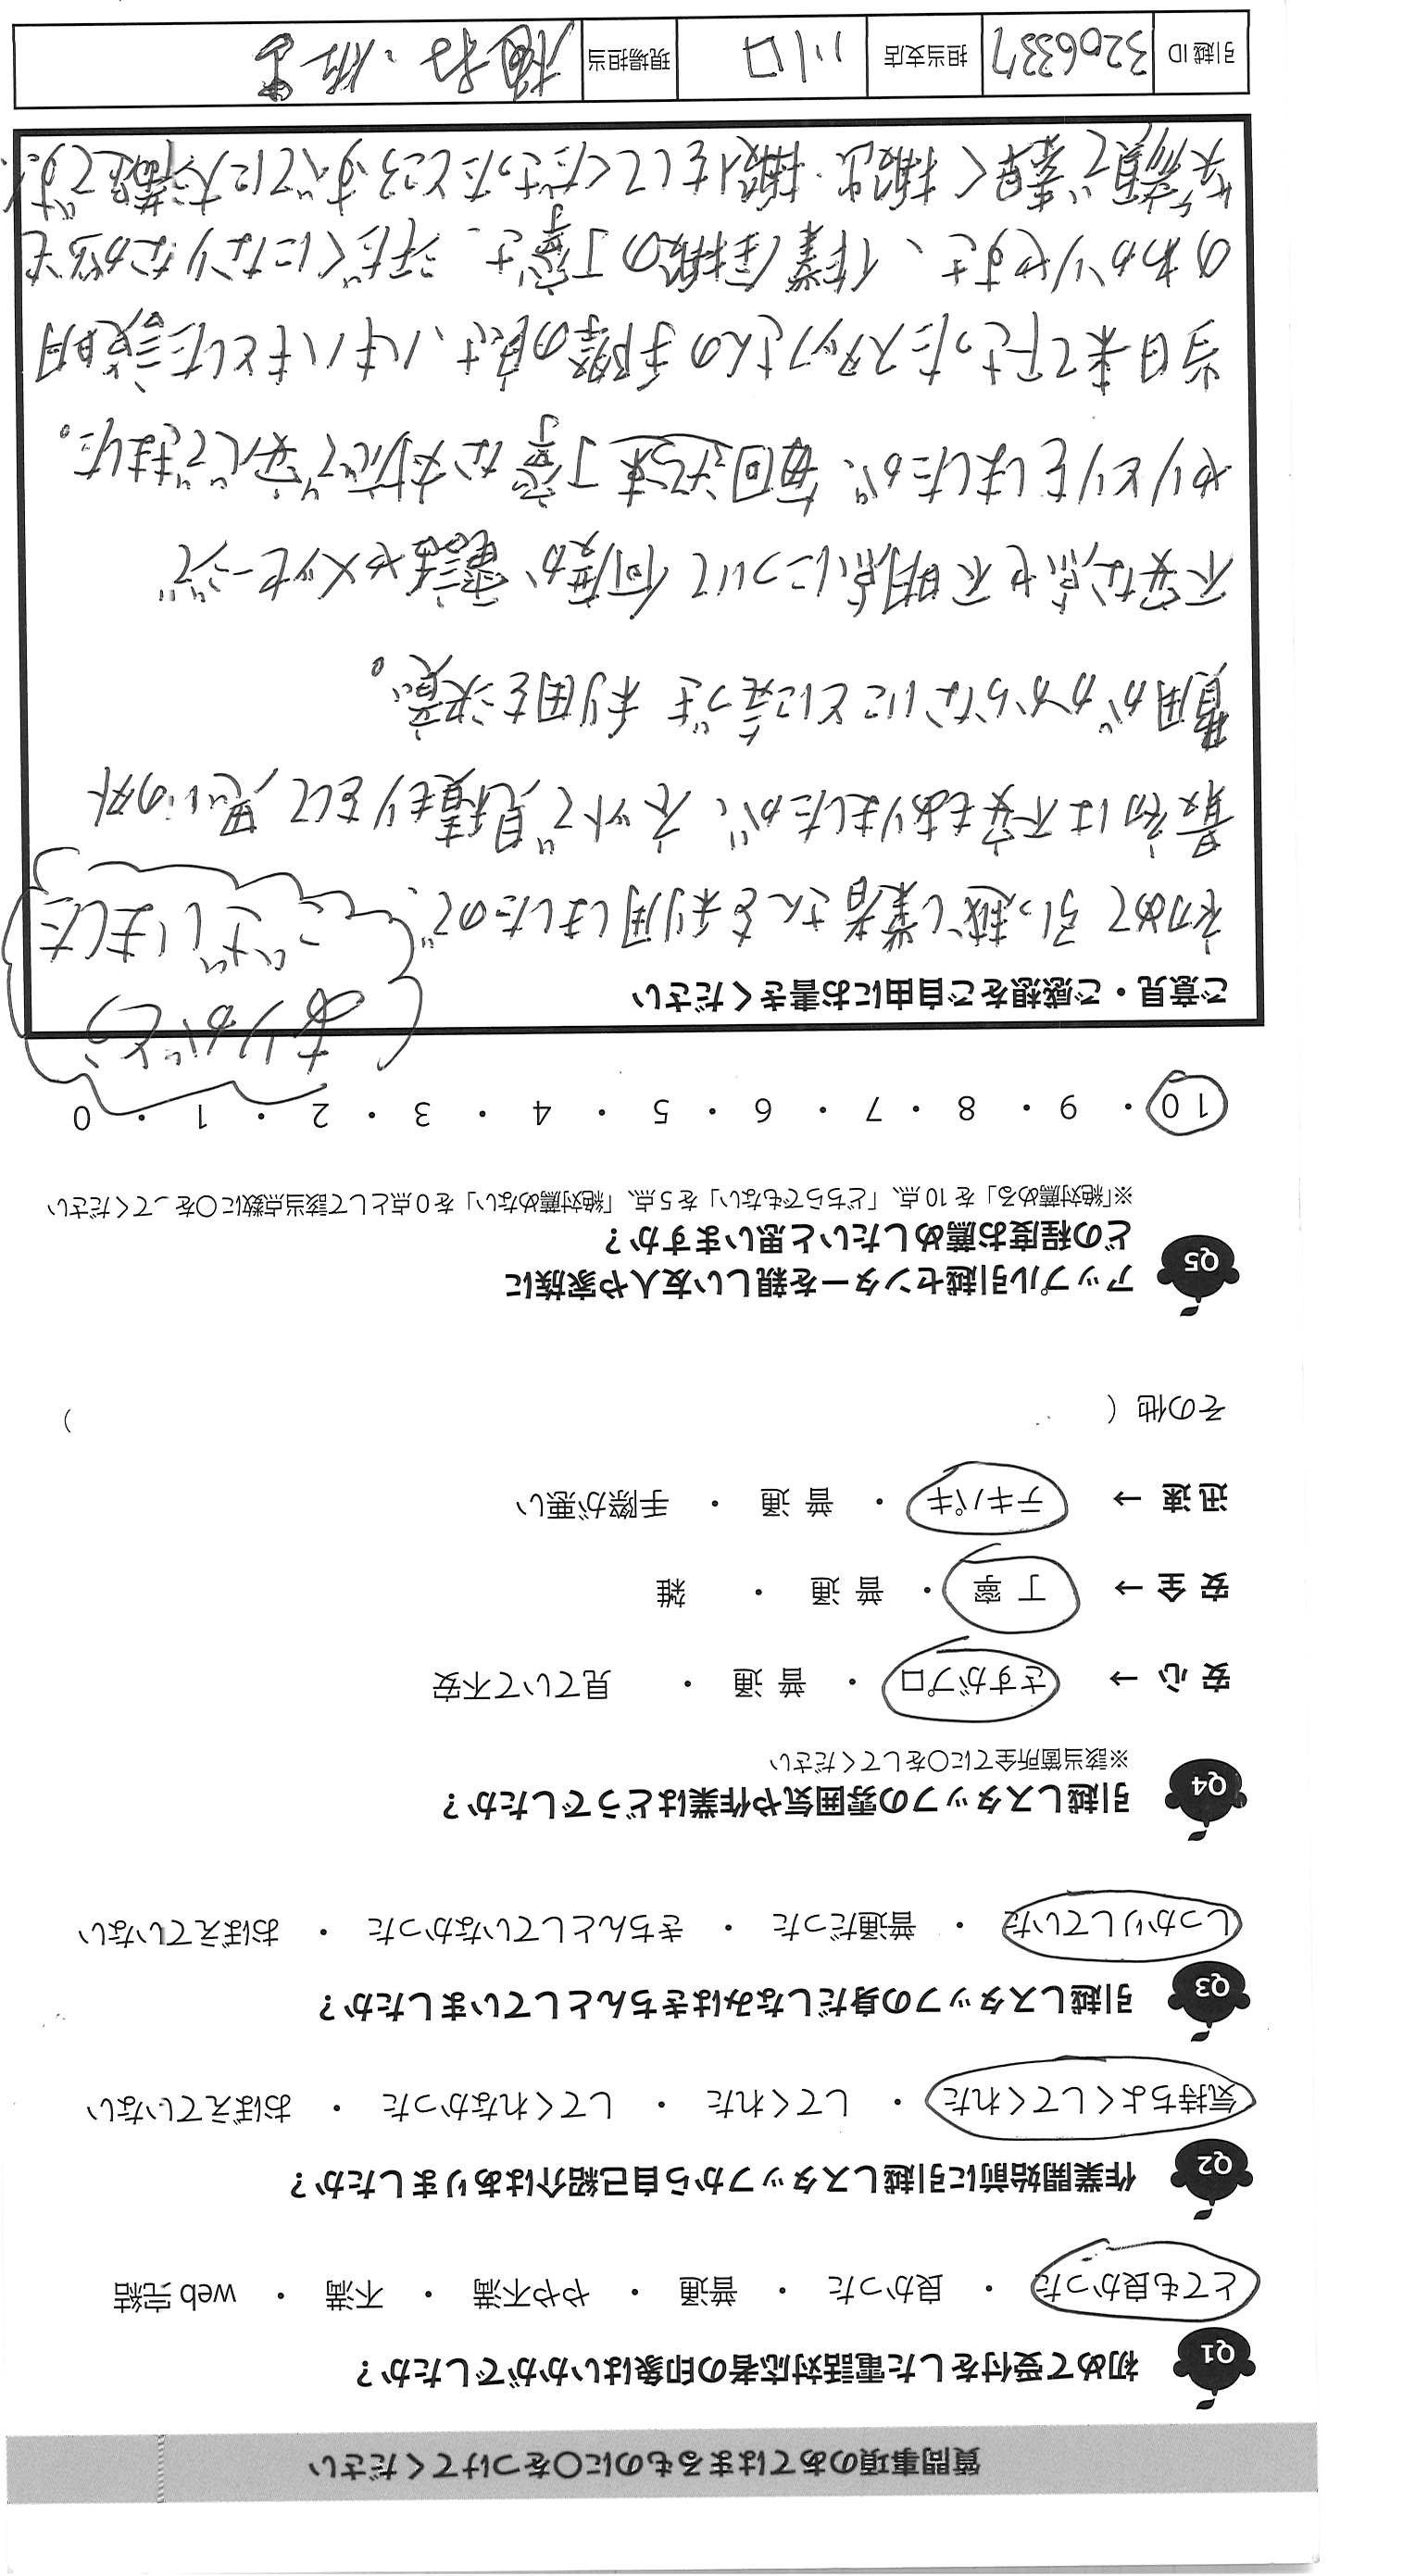 質問事項のあてはまるものに〇をつけてください
Q1 初めて受付をした電話対応者の印象はいかがでしたか？
とても良かった ・ 良かった ・ 普通 ・ やや不満 ・ 不満 ・ web完結
Q2 作業開始前に引越しスタッフから自己紹介はありましたか？
気持ちよくしてくれた ・ してくれた ・ してくれなかった ・ おぼえていない
Q3 引越しスタッフの身だしなみはきちんとしていましたか？
しっかりしていた ・ 普通だった ・ きちんとしていなかった ・ おぼえていない
Q4 引越しスタッフの雰囲気や作業はどうでしたか？
※該当箇所全てに〇をしてください
安心 → さすがプロ ・ 普通 ・ 見ていて不安
安全 → 丁寧 ・ 普通 ・ 雑
迅速 → テキパキ ・ 普通 ・ 手際が悪い
その他（ ）
Q5 アップル引越センターを親しい友人や家族に
どの程度お薦めしたいと思いますか？
※「絶対薦める」を10点、「どちらでもない」を5点、「絶対薦めない」を0点として該当点数に〇をつてください
10 ・ 9 ・ 8 ・ 7 ・ 6 ・ 5 ・ 4 ・ 3 ・ 2 ・ 1 ・ 0
ありがとう
ございました
ご意見・ご感想をご自由にお書きください
初めて引っ越し業者さんを利用しましたので、
最初は不安もありましたが、ネットで見積もりをして、思いの外
費用がかからないことに気づき利用を決意。
不安な点や不明点について何度か電話やメッセージで
やりとりをしましたが、毎回迅速丁寧な対応で安心できました。
当日来て下さったスタッフさんの手際の良さ、ハキハキとした説明
のわかりやすさ、作業全般の丁寧さ、汗だくになりながらも
笑顔で素早く搬出・搬入をしてくださったところすべてに大満足です。
引越ID 3206337 担当支店 川口 現場担当 植松・佐々